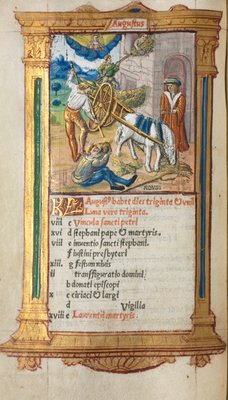 Augustus
KL Augustus habet dies triginta & unũ
Luna vero triginta.
viii c Vincula sancti petri
xvi d stephani pape & martyris.
v e inventio sancti stephani.
f iustini presbyteri
xiii. g festum nivis
ii transfiguratio domini.
b donati episcopi
x c ciriaci & largi
d Vigilia
xviii e Laurentii martyris.